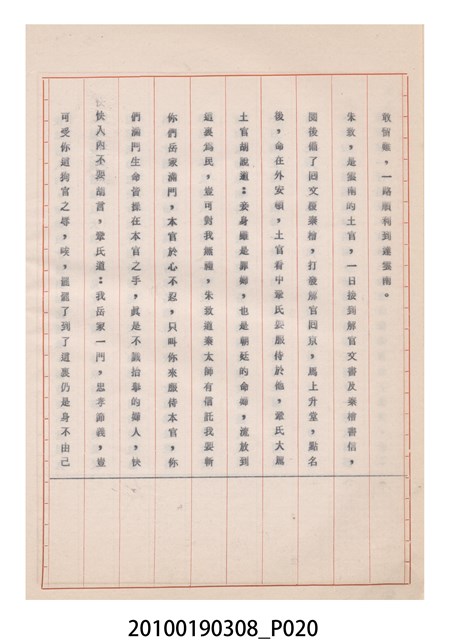 敢怠慢，一路順利到達雲南。
朱致，是雲南的土官，一日接到解官文書及秦檜書信，
閱後備了回文覆秦檜，打發解官回京，馬上升堂，點名
後，命在外安頓，土官看中鞏氏要服侍於他，鞏氏大罵
土官胡說道：妾身雖是罪婦，也是朝廷的命婦，流放到
這裏為民，豈可對我無禮，朱致道秦太師有信託我要斬
你們岳家滿門，本官於心不忍，只叫你來服侍本官，你
們滿門生命皆操在本官之手，真是不識抬舉的婦人，快
快入內不要胡言，鞏氏道：我岳家一門，忠孝節義，豈
可受你這狗官之辱，唉，罷罷了到了這裏仍是身不由己
20100190308_P020